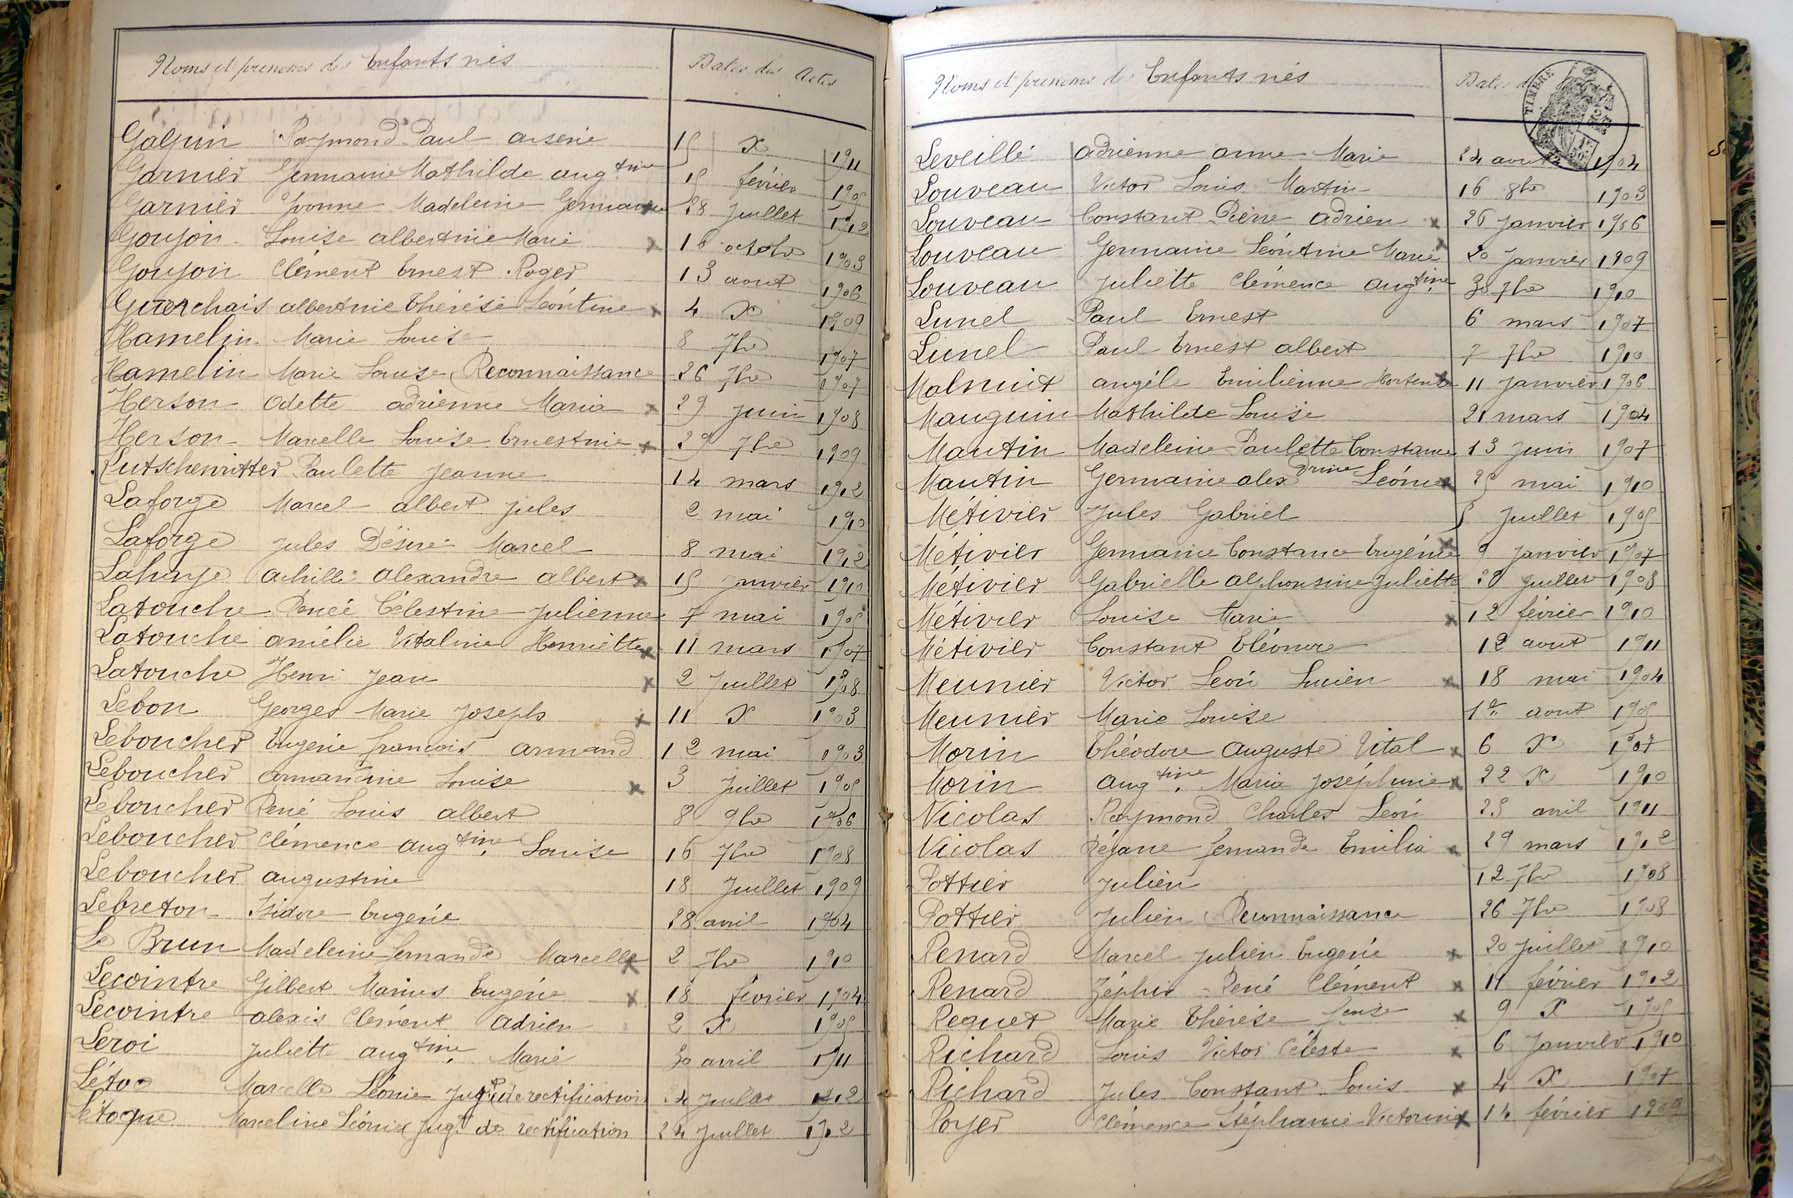 Noms et prénoms des Enfants nés Dates des Actes
Galguin Raymond Paul arsène 15 X 1911
Garnier Germaine Mathilde aug.tine 15 février 1905
Garnier Yvonne Madeleine Germaine 28 Juillet 1912
Goujon Louise albertine Marie x 16 octobre 1903
Goujon Clément Ernest Roger 13 aout 1906
albertine Thérèse Léontine x 4 X 1909
Hamelin Marie Louise 8 7bre 1907
Hamelin Marie Louise Reconnaissance 26 7bre 1907
Herson Odette adrienne Maria x 29 juin 1908
Herson Marcelle Louise Ernestine x 29 7bre 1909
Kutschenritter Paulette Jeanne 14 mars 1912
Laforge Marcel albert jules 2 mai 1910
Laforge Jules Désiré Marcel 8 mai 1912
achille alexandre albert x 15 janvier 1910
Latouche Renée Célestine Julienne 7 mai 1905
Latouche amélie Vitaline Henriette x 11 mars 1907
Latouche Henri Jean x 2 Juillet 1908
Lebon Georges Marie Joseph x 11 X 1903
Leboucher Eugène françois armand 12 mai 1903
Leboucher armantine Louise x 3 Juillet 1905
Leboucher René Louis albert 8 9bre 1906
Leboucher Clémence aug.tine Louise 16 7bre 1908
Leboucher augustine 18 Juillet 1909
Lebreton Isidore Eugène 28 avril 1904
Le Brun Madeleine fernande Marcelle x 2 7bre 1910
Lecointre Gilbert Marius Eugène x 18 février 1904
Lecointre alexis Clément Adrien 2 X 1905
Leroi Juliette aug.tine Marie 30 avril 1911
Marcelle Léonie Jug.t de rectification 24 juillet 1912
Létoque Marceline Léonie Jug.t de rectification 24 Juillet 1912
Noms et prénoms des Enfants nés Dates d
TIMBRE
Leveillé adrienne anne Marie 24 aout 1904
Louveau Victor Louis Martin 16 8bre 1903
Louveau Constant Pierre adrien x 26 janvier 1906
Louveau Germaine Léontine Marie x 20 Janvier 1909
Louveau Juliette Clémence aug.tine 30 7bre 1910
Lunel Paul Ernest 6 mars 1907
Lunel Paul Ernest albert 7 7bre 1910
angèle Emilienne Hortense 11 Janvier 1906
Mauguin Mathilde Louise 21 mars 1904
Mautin Madeleine Paulette Constance 13 Juin 1907
Mautin Germaine alexdrine Léonie x 25 mai 1910
Métivier Jules Gabriel 5 Juillet 1905
Métivier Germaine Constance Eugénie x 9 janvier 1907
Métivier Gabrielle alphonsine Juliette 28 juillet 1908
Métivier Louise Marie x 12 février 1910
Métivier Constant Eléonore 12 aout 1911
Meunier Victor Léon Lucien x 18 mai 1904
Meunier Marie Louise 1er aout 1905
Morin Théodore Auguste Vital x 6 X 1907
Morin aug.tine Maria Joséphine x 22 X 1910
Nicolas Raymond Charles Léon 25 avril 1911
Nicolas Réjane fernande Emilia x 29 mars 1912
Pottier Julien 12 7bre 1908
Pottier Julien Reconnaissance 26 7bre 1908
Renard Marcel Julien Eugène x 20 juillet 1910
Renard Zéphir René Clément x 11 février 1912
Requet Marie Thérèse x 9 X 1905
Richard Louis Victor Céleste x 6 Janvier 1910
Richard Jules Constant Louis x 4 X 1907
Royer Clémence Stéphanie Victorine x 14 février 1909